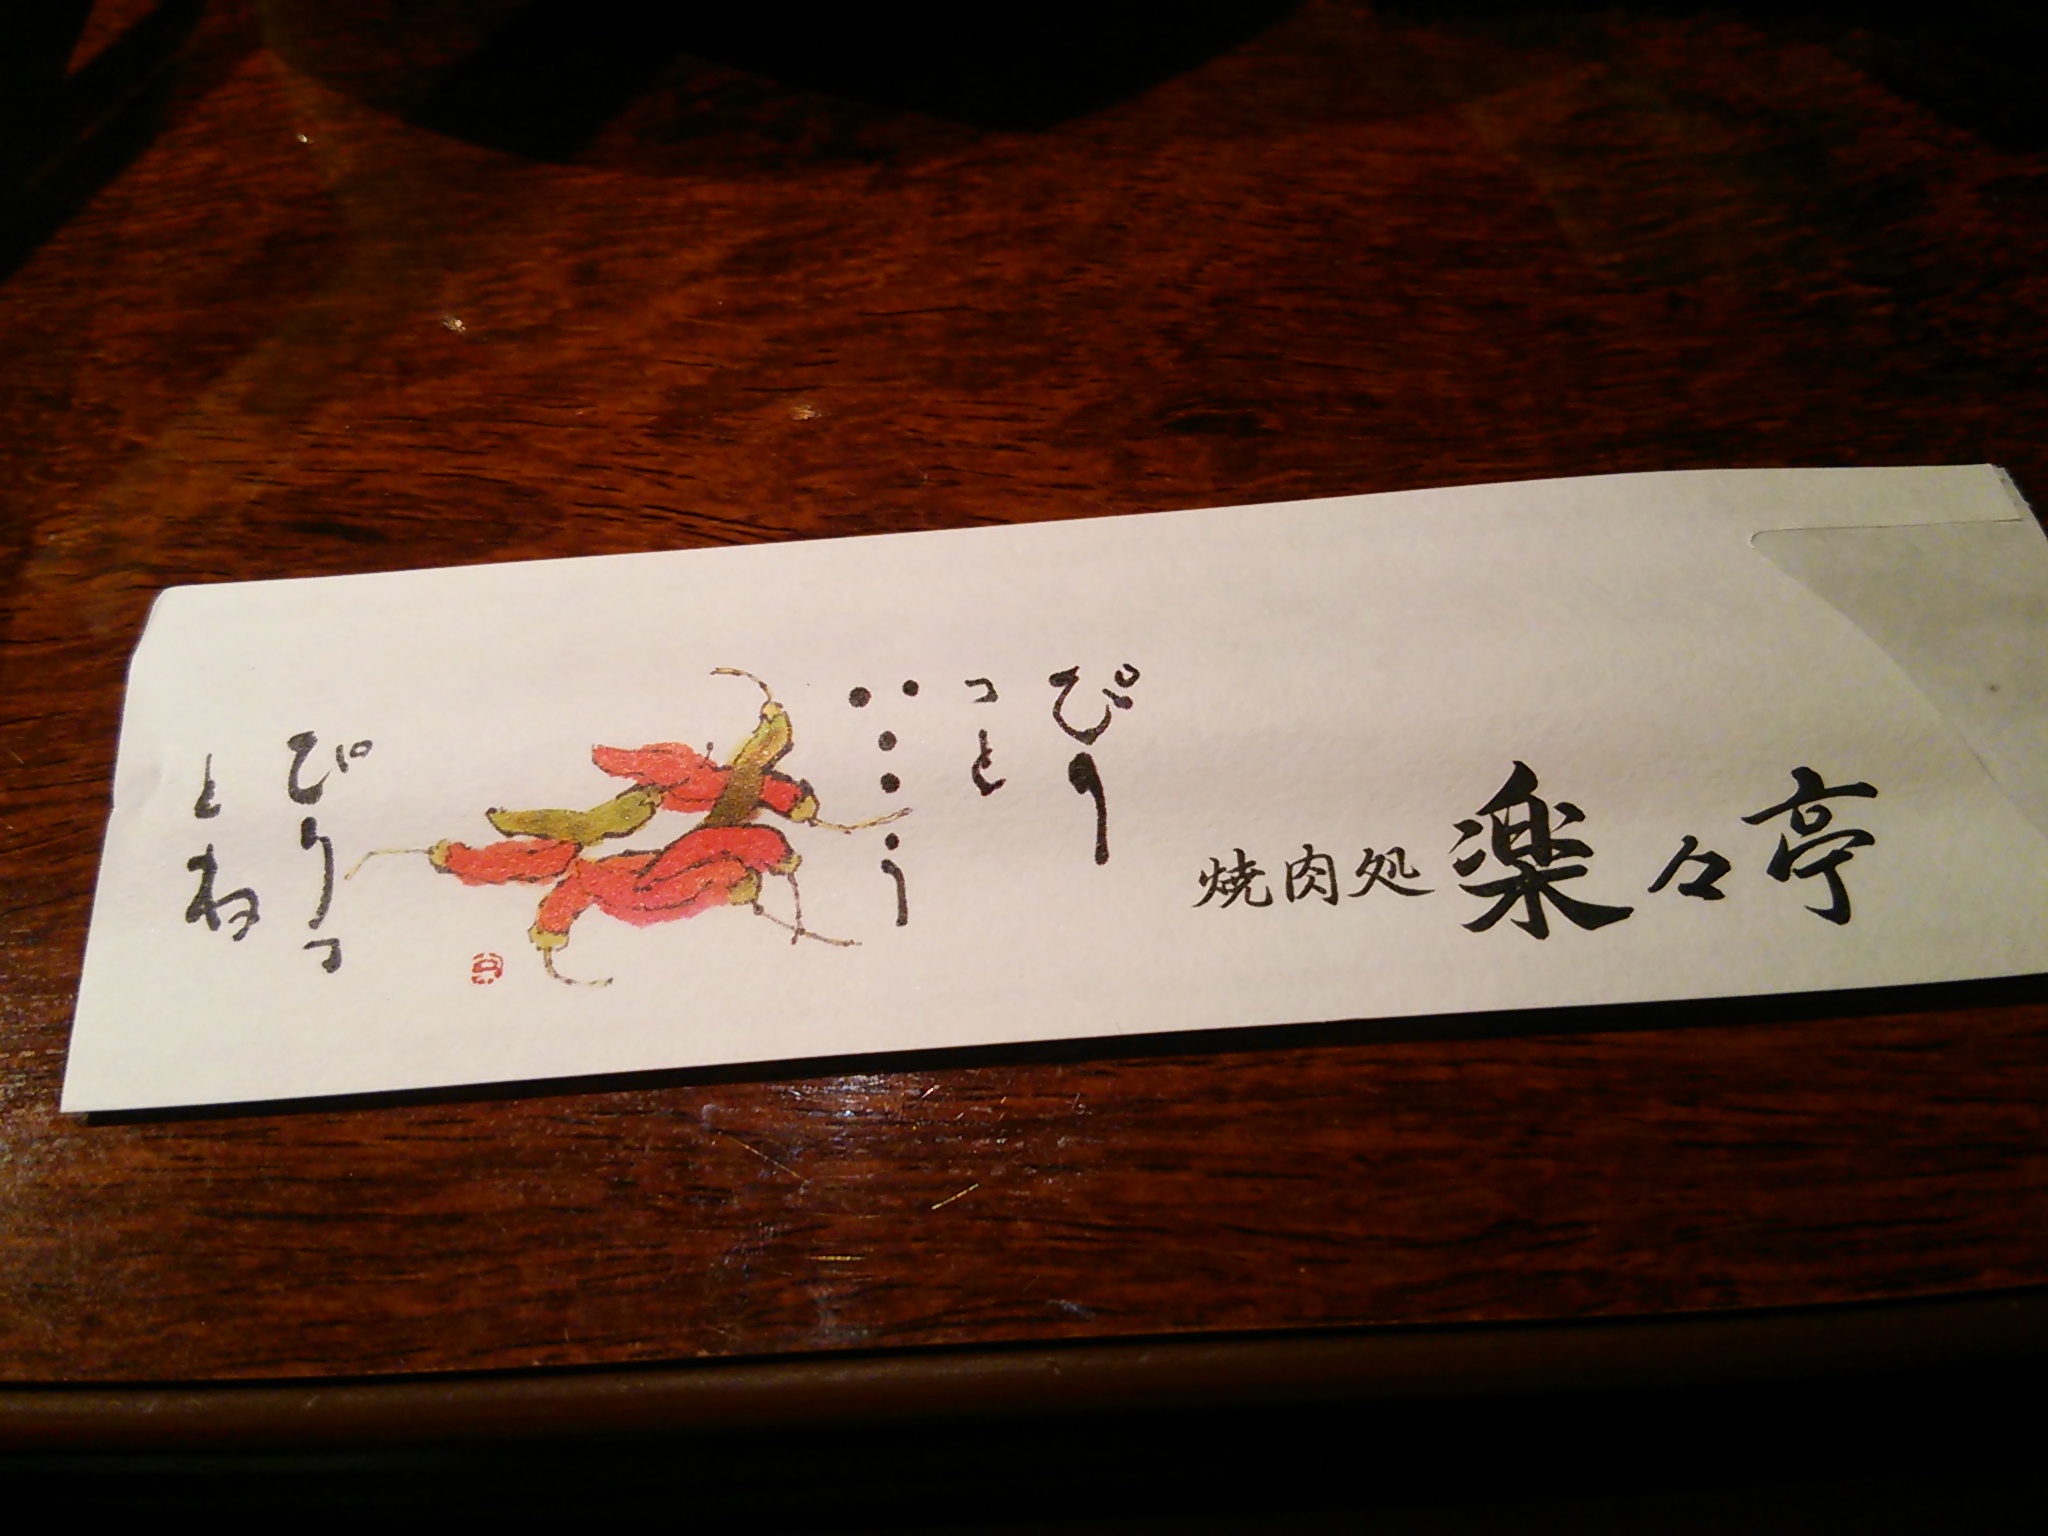 焼肉処 楽々亭
ぴり
っと
・・・・う
ぴりっ
とね